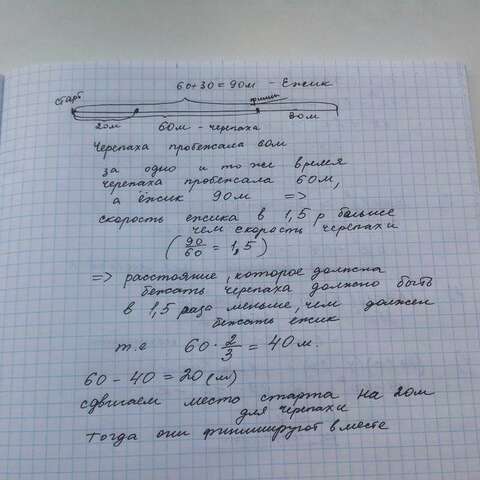 60+30=90м - Ежик
старт финиш
20м 60м - черепаха 30м
Черепаха пробежала 60м
за одно и то же время
черепаха пробежала 60м,
а ёжик 90м =>
скорость ежика в 1,5 р больше
чем скорость черепахи
(90/60 = 1,5)
=> расстояние, которое должна
бежать черепаха должно быть
в 1,5 раза меньше, чем должен
бежать ежик
т.е 60 · 2/3 = 40 м.
60 - 40 = 20 (м)
сдвигаем место старта на 20м
для черепахи
Тогда они финишируют вместе